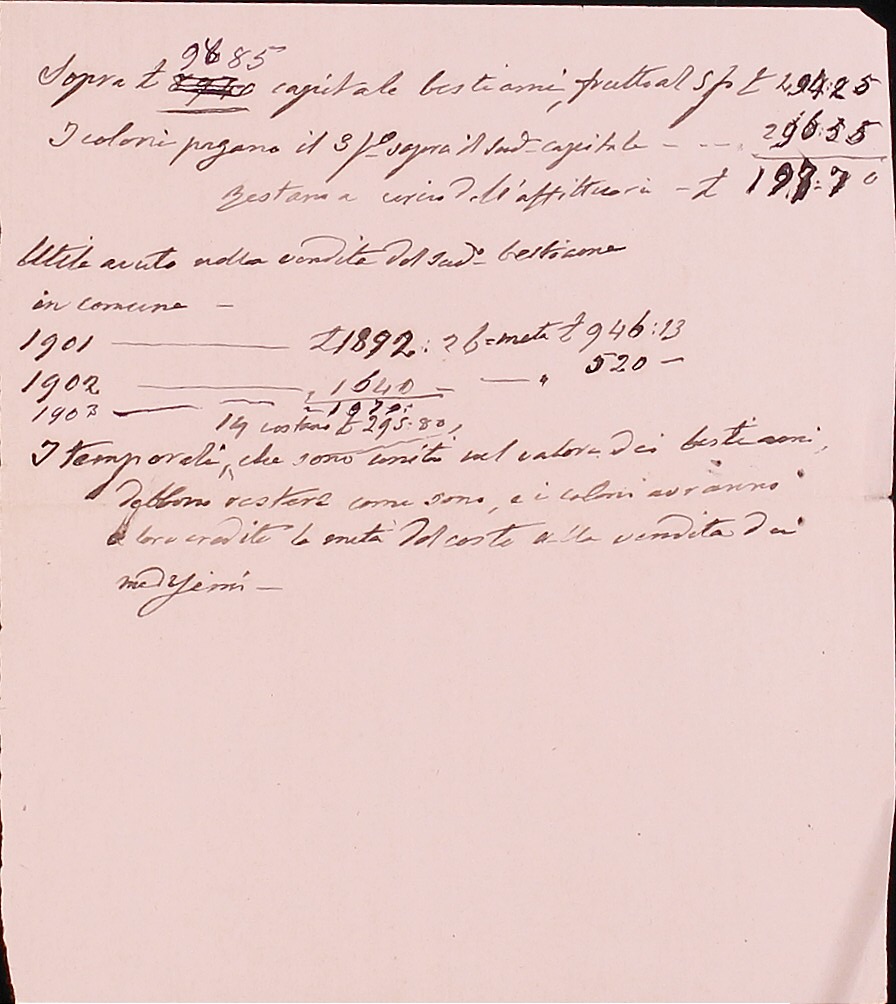 9885
Sopra £ capitale bestiami, frutto al 5 p £ 494:25
I coloni pagano il 3 p% sopra il sud.o capitale - - - 296:55
Restano a carico dell'affittuario - £ 197:70
Utile avuto nella vendita del sud.o bestiame
in comune -
1901 £ 1892:26 = metà £ 946:13
1902 " 1040 - " 520 -
1903 1970:
19 £ 295:80,
I temporali, che sono uniti nel valore dei bestiami,
debbono restare come sono, e i coloni avranno
a loro credito la metà del costo alla vendita dei
medesimi -